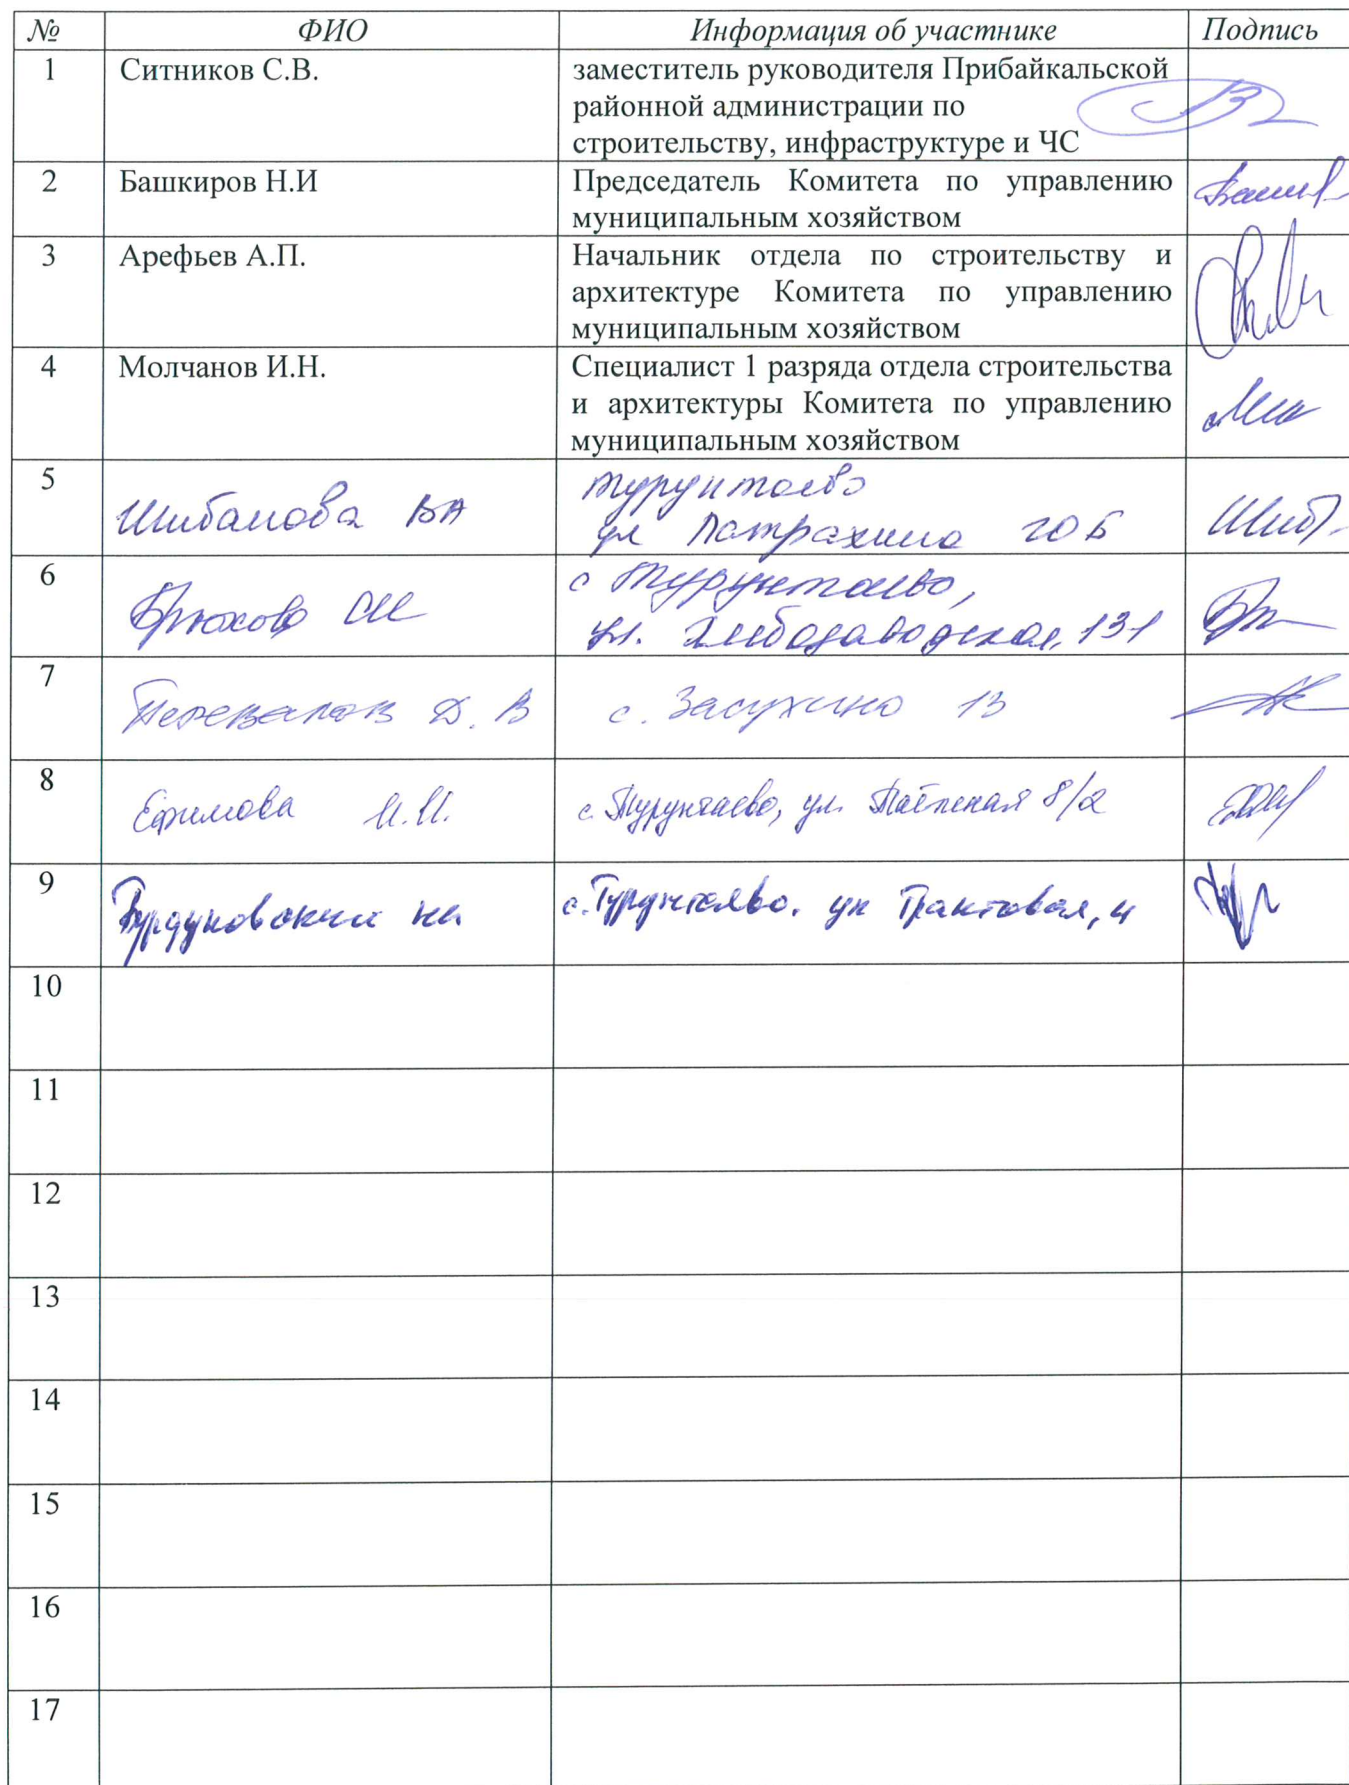 № ФИО Информация об участнике Подпись
1 Ситников С.В. заместитель руководителя Прибайкальской
районной администрации по
строительству, инфраструктуре и ЧС
2 Башкиров Н.И Председатель Комитета по управлению
муниципальным хозяйством
3 Арефьев А.П. Начальник отдела по строительству и
архитектуре Комитета по управлению
муниципальным хозяйством
4 Молчанов И.Н. Специалист 1 разряда отдела строительства
и архитектуры Комитета по управлению
муниципальным хозяйством
5 Турунтаево
Шибанова ВА ул 20 Б
6 с Турунтаево,
Брюхова ул. Хлебозаводская, 131
7 Перевалов Д. В с. Засухино 13
8 Ефимова с. Турунтаево, ул. Таёжная 8/2
9 Бурдуковский с. Турунтаево. ул Трактовая, 4
10
11
12
13
14
15
16
17